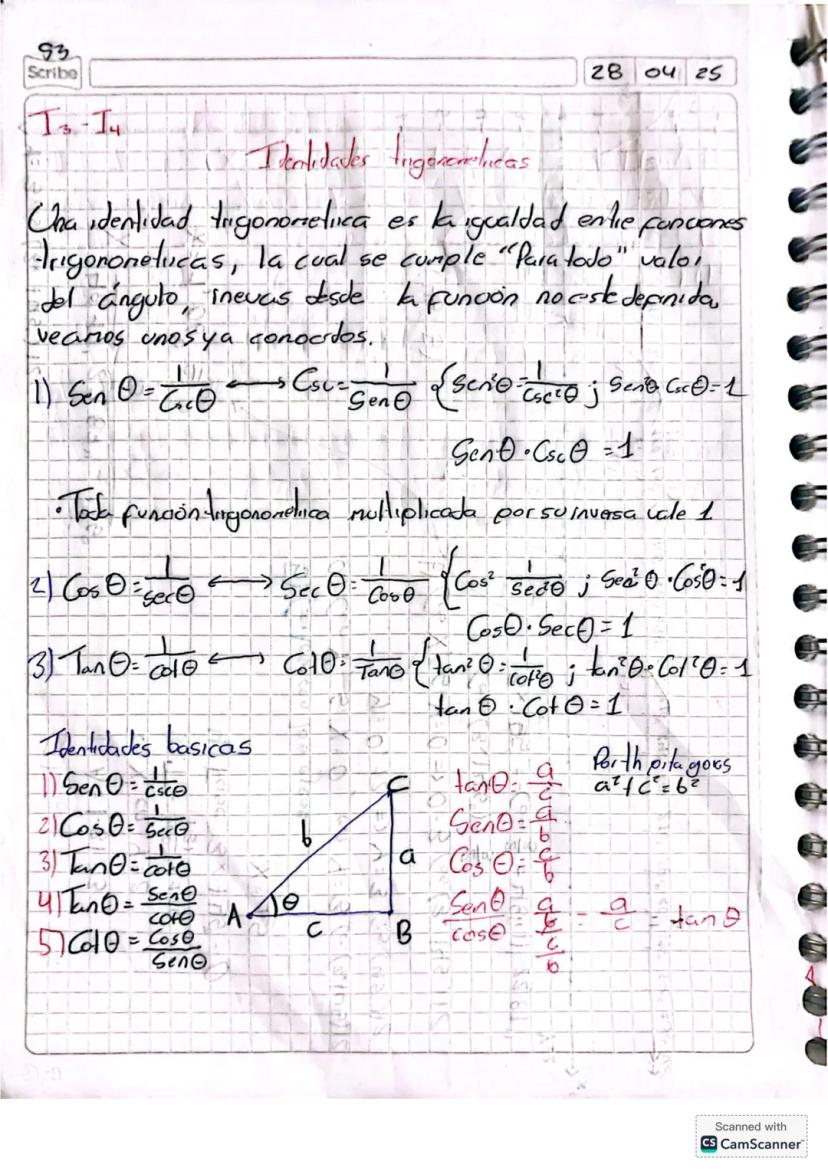 93
Scribe
28 04 25
I3 - I4
Identidades trigonometricas
Una identidad trigonometrica es la igualdad entre funciones
trigonometricas, la cual se cumple "Para todo" valor
del ángulo, desde la función no este definida,
veamos unos ya conocidos.
1) Sen θ = 1/Csc θ ⟷ Csc = 1/Sen θ { Sen²θ = 1/Csc²θ ; Sen²θ Csc θ = 1
Sen θ · Csc θ = 1
· Toda función trigonometrica multiplicada por su inversa vale 1
2) Cos θ = 1/Sec θ ⟷ Sec θ = 1/Cos θ { Cos² 1/Sec²θ ; Sec²θ · Cos²θ = 1
Cos θ · Sec θ = 1
3) Tan θ = 1/Cot θ ⟷ Cot θ = 1/Tan θ { tan²θ = 1/cot²θ ; tan²θ · Cot²θ = 1
tan θ · Cot θ = 1
Identidades basicas
1) Sen θ = 1/csc θ
2) Cos θ = 1/Sec θ
3) Tan θ = 1/cot θ
4) Tan θ = Sen θ/cot θ
5) Cot θ = Cos θ/Sen θ
A
b
C
a
θ
c
B
tan θ = a/c
Sen θ = a/b
Cos θ = c/b
Sen θ/cos θ = a/b / c/b = a/c = tan θ
Por th pitagors
a² + c² = b²
Scanned with
CS CamScanner